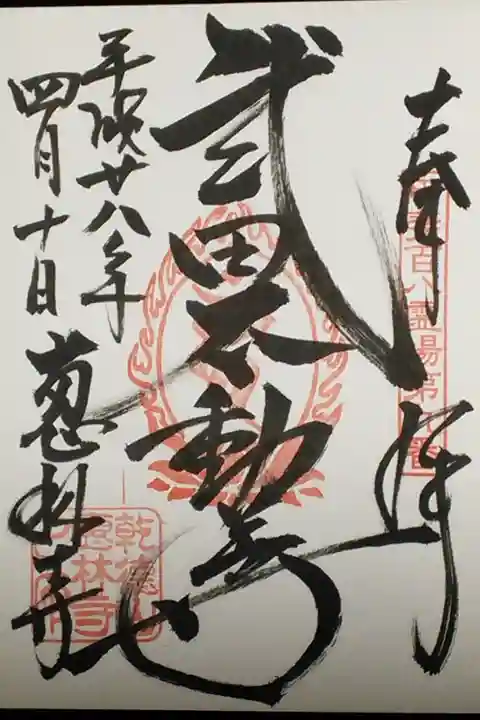 奉拝
百八霊場第九番
武田不動尊
平成廿八年
四月十日
恵林寺
乾徳山
恵林寺